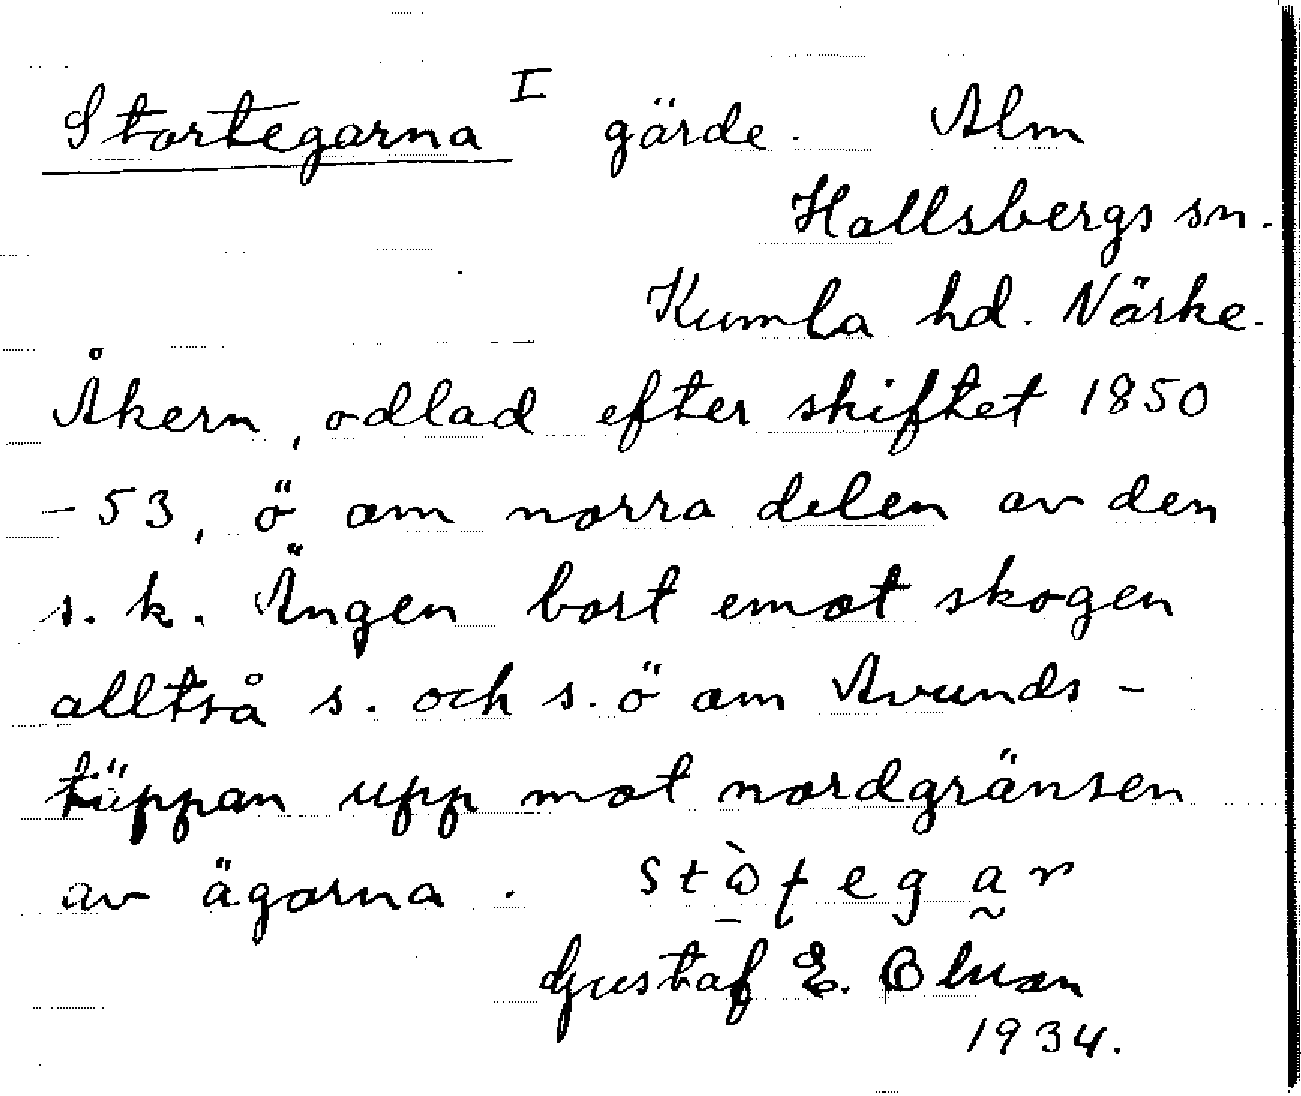 Stortegarna I gärde. Alm
Hallsbergs sn.
Kumla hd. Närke.
Åkern, odlad efter skiftet 1850
-53, ö om norra delen av den
s. k. Ängen bort emot skogen
alltså s. och s.ö om Avunds-
täppan upp mot nordgränsen
av ägorna.
Gustaf E.
1934.